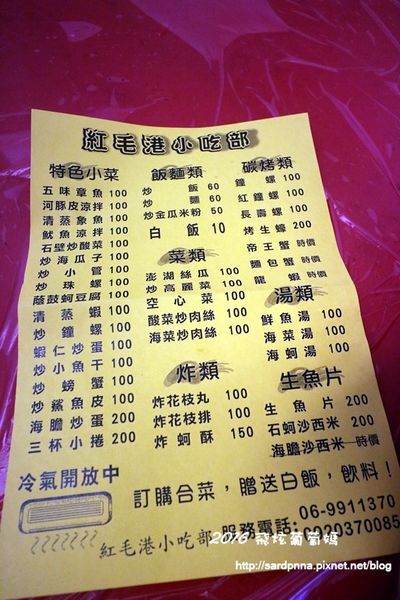 紅毛港小吃部
特色小菜
五味章魚 100
河豚皮涼拌 100
清蒸象魚 100
魷魚涼拌 100
石壁炒酸菜 100
炒海瓜子 100
炒小管 100
炒珠螺 100
蔭鼓蚵豆腐 100
清蒸蝦 100
炒鐘螺 100
蝦仁炒蛋 100
炒小魚干 100
炒螃蟹 100
炒鯊魚皮 100
海膽炒蛋 200
三杯小捲 200
飯麵類
炒飯 60
炒麵 60
炒金瓜米粉 50
白飯 10
菜類
澎湖絲瓜 100
炒高麗菜 100
空心菜 100
酸菜炒肉絲 100
海菜炒肉絲 100
炸類
炸花枝丸 100
炸花枝排 100
炸蚵酥 150
碳烤類
鐘螺 100
紅鐘螺 100
長壽螺 100
烤生蠔 200
帝王蟹 時價
麵包蟹 時價
龍蝦 時價
湯類
鮮魚湯 100
海菜湯 100
海蚵湯 100
生魚片
生魚片 200
石蚵沙西米 200
海膽沙西米 時價
冷氣開放中
訂購合菜，贈送白飯，飲料！
紅毛港小吃部 服務電話: 06-9911370
0920370085
2016 飛炫葡萄媽
http://sardpnna.pixnet.net/blog